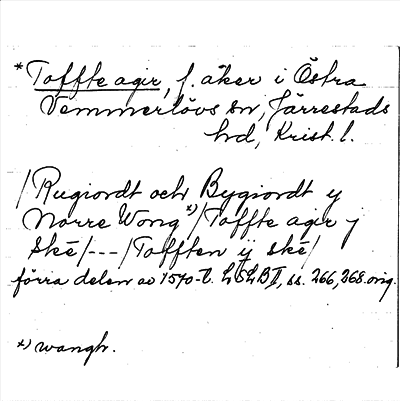 * Toffte agir, f. åker i Östra
Vemmerlövs sn, Järrestads
hd, Krist. l.
/Rugiordt och Bygiordt y
Norre Wong*)/Toffte agir j
Skē/---/Tofften ij skē/
förra delen av 1570-t. LSLB II, ss. 266, 268. orig.
*) wangh.